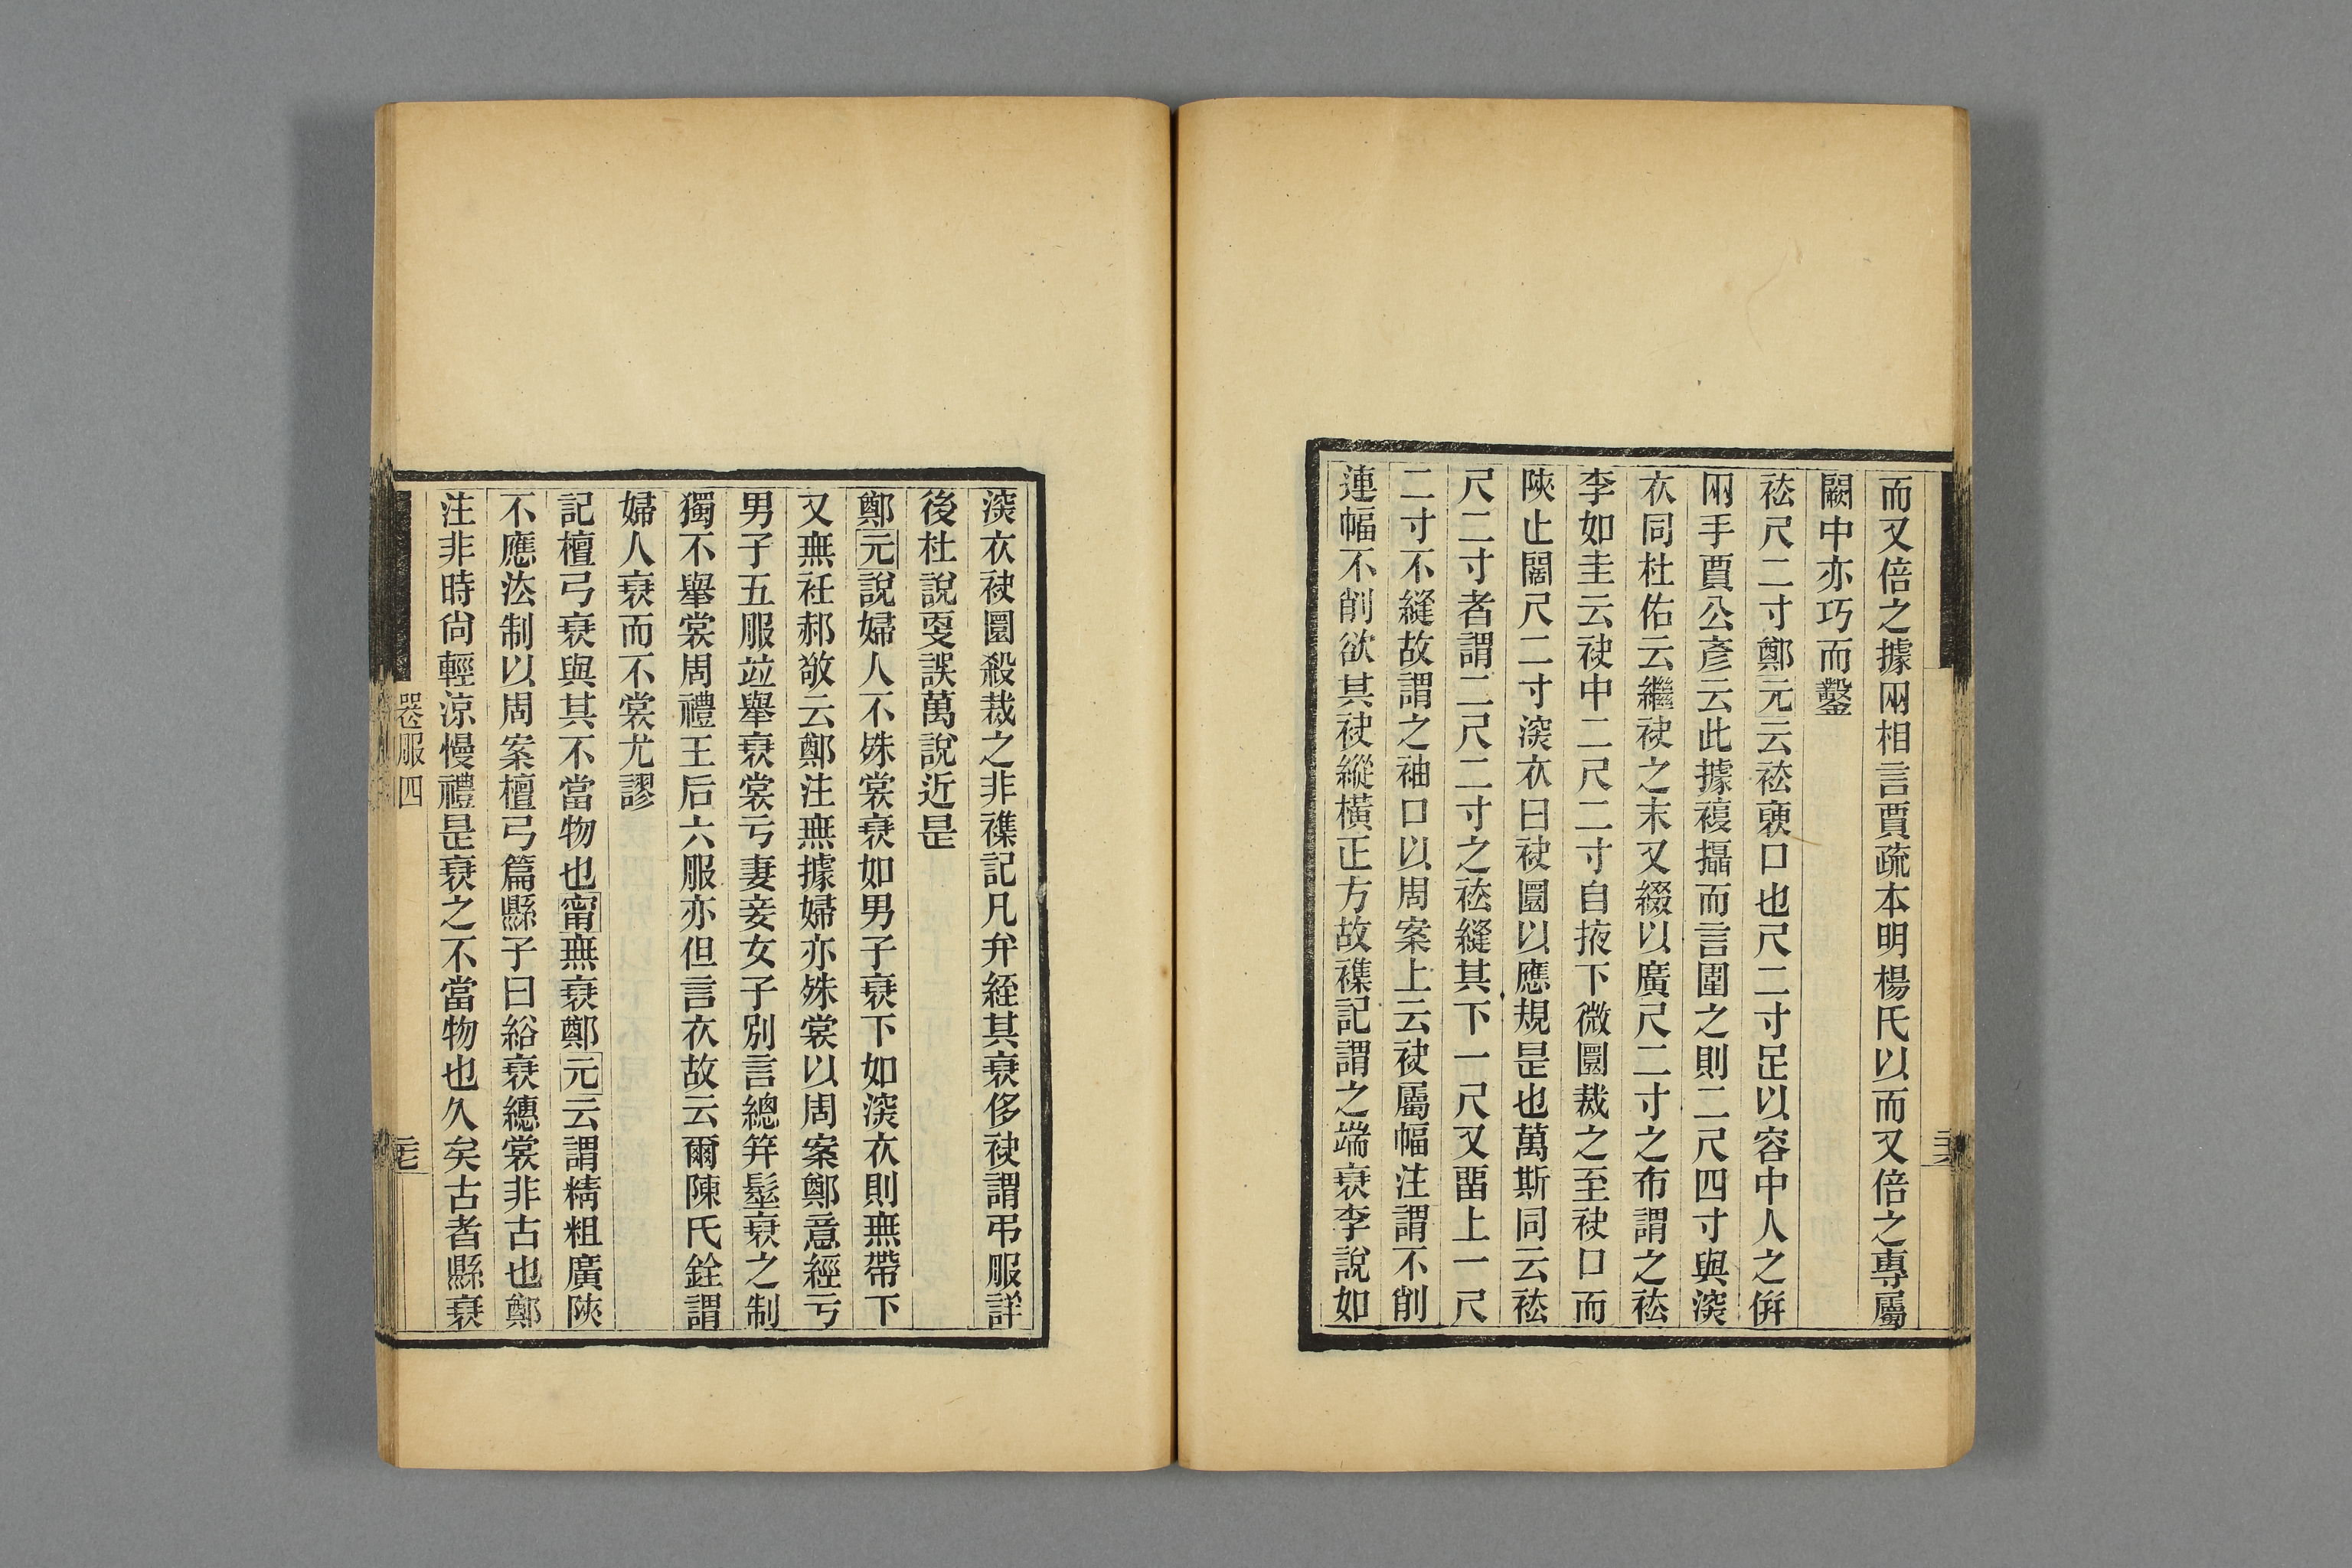 而又倍之據兩相言賈疏本明楊氏以而又倍之專屬
闕中亦巧而鑿
袪尺二寸鄭元云袪袖口也尺二寸足以容中人之併
兩手賈公彥云此據複攝而言圍之則二尺四寸與深
衣同杜佑云繼袂之末又綴以廣尺二寸之布謂之袪
李如圭云袂中二尺二寸自掖下微圜裁之至袂口而
陜止闊尺二寸深衣曰袂圜以應規是也萬斯同云袪
尺二寸者謂二尺二寸之袪縫其下一尺又畱上一尺
二寸不縫故謂之袖口以周案上云袂屬幅注謂不削
連幅不削欲其袂縱橫正方故襍記謂之端衰李說如
深衣袂圜殺裁之非襍記凡弁絰其衰侈袂謂弔服詳
後杜說㪅誤萬說近是
鄭元說婦人不殊裳衰如男子衰下如深衣則無帶下
又無衽郝敬云鄭注無據婦亦殊裳以周案鄭意經亏
男子五服竝舉衰裳亏妻妾女子別言總笄髽衰之制
獨不舉裳周禮王后六服亦但言衣故云爾陳氏銓謂
婦人衰而不裳尤謬
記檀弓衰與其不當物也甯無衰鄭元云謂精粗廣陜
不應法制以周案檀弓篇縣子曰綌衰繐裳非古也鄭
注非時尙輕涼慢禮是衰之不當物也久矣古者縣衰
喪服四